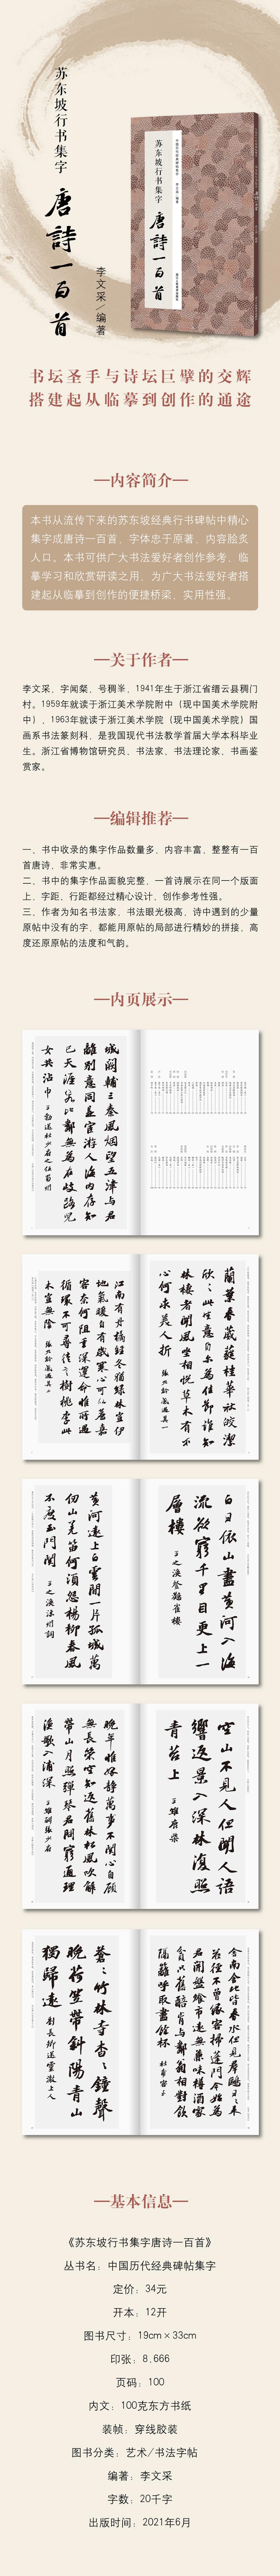 苏东坡行书集字
唐詩一百首
李文采／编著
苏东坡行书集字
唐詩一百首
书坛圣手与诗坛巨擘的交辉
搭建起从临摹到创作的通途
内容简介
本书从流传下来的苏东坡经典行书碑帖中精心
集字成唐诗一百首，字体忠于原著，内容脍炙
人口。本书可供广大书法爱好者创作参考、临
摹学习和欣赏研读之用，为广大书法爱好者搭
建起从临摹到创作的便捷桥梁，实用性强。
关于作者
李文采，字闻粲，号稠峯，1941年生于浙江省缙云县稠门
村。1959年就读于浙江美术学院附中（现中国美术学院附
中），1963年就读于浙江美术学院（现中国美术学院）国
画系书法篆刻科，是我国现代书法教学首届大学本科毕业
生。浙江省博物馆研究员、书法家、书法理论家、书画鉴
赏家。
编辑推荐
一、书中收录的集字作品数量多，内容丰富，整整有一百
首唐诗，非常实惠。
二、书中的集字作品面貌完整，一首诗展示在同一个版面
上，字距、行距都经过精心设计，创作参考性强。
三、作者为知名书法家，书法眼光极高，诗中遇到的少量
原帖中没有的字，都能用原帖的局部进行精妙的拼接，高
度还原原帖的法度和气韵。
内页展示
城闕輔三秦風烟望五津與君
離別意同是宦游人海内存知
己天涯若比鄰無爲在岐路兒
女共沾巾 王勃送杜少府之任蜀州
蘭葉春葳蕤桂華秋皎潔
欣欣此生意自爾爲佳節誰知
林棲者聞風坐相悦草木有本
心何求美人折 張九齡感遇其一
江南有丹橘經冬猶綠林豈伊
地氣暖自有歲寒心可以薦嘉
客奈何阻重深運命唯所遇
循環不可尋徒言樹桃李此
木豈無陰 張九齡感遇其二
白日依山盡黄河入海
流欲窮千里目更上一
層樓 王之涣登鸛雀樓
黄河遠上白雲間一片孤城萬
仞山羌笛何須怨楊柳春風
不度玉門關 王之涣凉州詞
空山不見人但聞人語
響返景入深林復照
青苔上 王維鹿柴
晚年惟好静萬事不關心自顧
無長策空知返舊林松風吹解
帶山月照彈琴君問窮通理
漁歌入浦深 王維酬張少府
舍南舍北皆春水但見群鷗日日来
花徑不曾缘客掃蓬門今始爲
君開盤飧市遠無兼味樽酒家
貧只舊醅肯與鄰翁相對飲
隔籬呼取盡餘杯 杜甫客至
蒼蒼竹林寺杳杳鐘聲
晚荷笠帶斜陽青山
獨歸遠 劉長卿送靈澈上人
基本信息
《苏东坡行书集字唐诗一百首》
丛书名：中国历代经典碑帖集字
定价：34元
开本：12开
图书尺寸：19cm×33cm
印张：8.666
页码：100
内文：100克东方书纸
装帧：穿线胶装
图书分类：艺术/书法字帖
编著：李文采
字数：20千字
出版时间：2021年6月